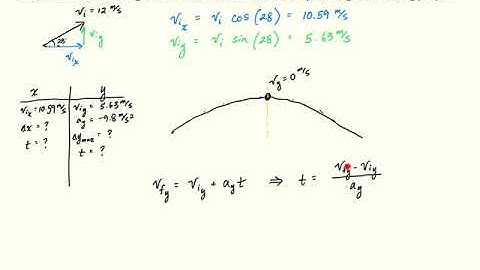 vi = 12 m/s
viy
28°
vix
vix = vi cos(28) = 10.59 m/s
viy = vi sin(28) = 5.63 m/s
x y
vix = 10.59 m/s viy = 5.63 m/s
Δx = ? ay = -9.8 m/s²
t = ? Δymax = ?
t = ?
vy = 0 m/s
vfy = viy + ay t ⇒ t = vfy - viy / ay